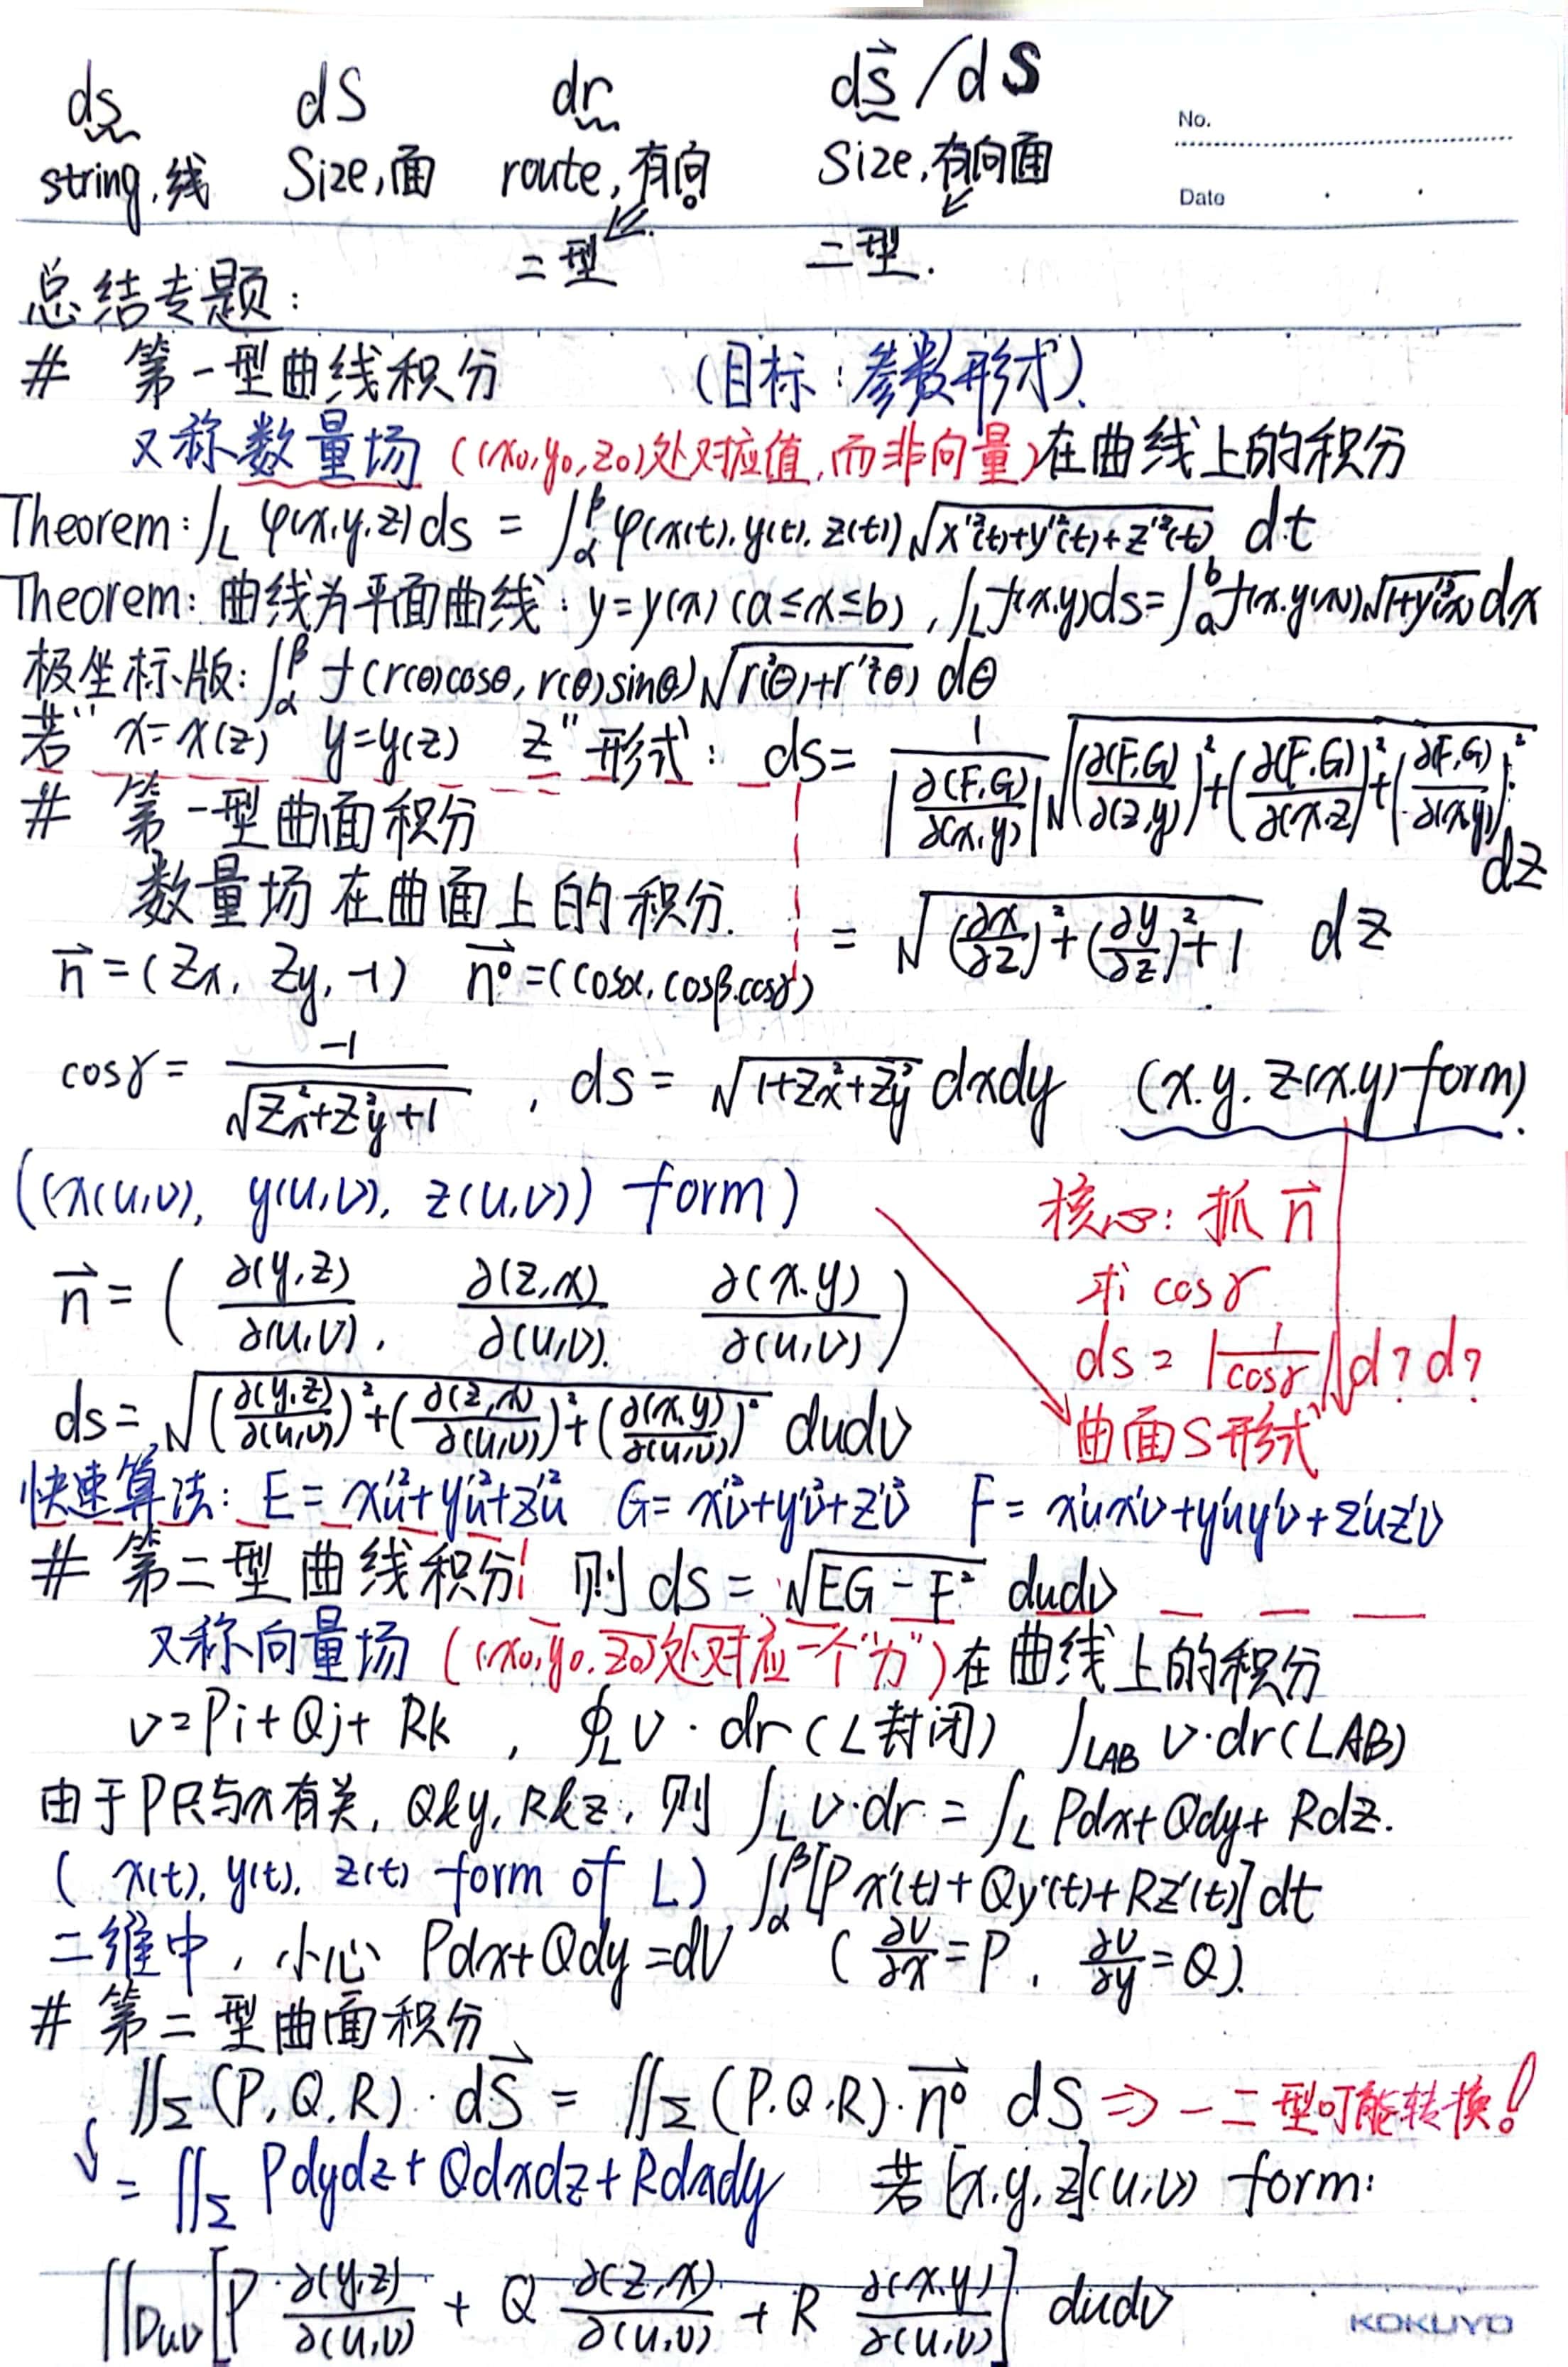 ds dS dr dS⃗ / dS
string,线 Size,面 route,有向 Size,有向面
No.
Date
二型 二型.
总结专题:
# 第一型曲线积分 (目标:参数形式).
又称数量场 ((x₀,y₀,z₀)处对应值,而非向量)在曲线上的积分
Theorem: ∫_L φ(x,y,z)ds = ∫_α^β φ(x(t),y(t),z(t)) √(x'²(t)+y'²(t)+z'²(t)) dt
Theorem: 曲线为平面曲线: y=y(x) (a≤x≤b), ∫_L f(x,y)ds=∫_a^b f(x,y(x))√(1+y'²(x)) dx
极坐标版: ∫_α^β f(r(θ)cosθ, r(θ)sinθ)√(r²(θ)+r'²(θ)) dθ
若"x=x(z) y=y(z) z"形式: ds= 1/|∂(F,G)/∂(x,y)| √((∂(F,G)/∂(z,y))²+(∂(F,G)/∂(x,z))²+(∂(F,G)/∂(x,y))²) dz
# 第一型曲面积分
数量场在曲面上的积分. = √((∂x/∂z)²+(∂y/∂z)²+1) dz
n⃗=(Zx, Zy, -1) n⃗°=(cosα,cosβ,cosγ)
cosγ= -1/√(Zx²+Zy²+1) , ds = √(1+Zx²+Zy²) dxdy (x.y.z(x.y) form).
((x(u,v), y(u,v), z(u,v)) form)
核心: 抓 n⃗
求 cosγ
n⃗ = ( ∂(y,z)/∂(u,v), ∂(z,x)/∂(u,v), ∂(x,y)/∂(u,v) )
ds = |1/cosγ| d? d?
曲面S形式
ds= √((∂(y,z)/∂(u,v))²+(∂(z,x)/∂(u,v))²+(∂(x,y)/∂(u,v))²) dudv
快速算法: E = x'u²+y'u²+z'u² G= x'v²+y'v²+z'v² F = x'ux'v+y'uy'v+z'uz'v
# 第二型曲线积分 则 dS = √(EG-F²) dudv
又称向量场 ((x₀,y₀,z₀)处对应一个"力")在曲线上的积分
v=Pi+Qj+Rk , ∮_L v·dr (L封闭) ∫_LAB v·dr(LAB)
由于P只与x有关, Q&y, R&z, 则 ∫_L v·dr = ∫_L Pdx+Qdy+Rdz.
( x(t), y(t), z(t) form of L) ∫_α^β[Px'(t)+Qy'(t)+Rz'(t)]dt
二维中, 小心 Pdx+Qdy=dU (∂U/∂x=P, ∂U/∂y=Q).
# 第二型曲面积分
∬_Σ (P,Q,R)·dS⃗ = ∬_Σ (P.Q.R)·n⃗° dS ⇒ 一二型可能转换!
= ∬_Σ Pdydz+Qdxdz+Rdxdy 若[x,y,z](u,v) form:
∬_Duv [P ∂(y,z)/∂(u,v) + Q ∂(z,x)/∂(u,v) + R ∂(x,y)/∂(u,v)] dudv
KOKUYO